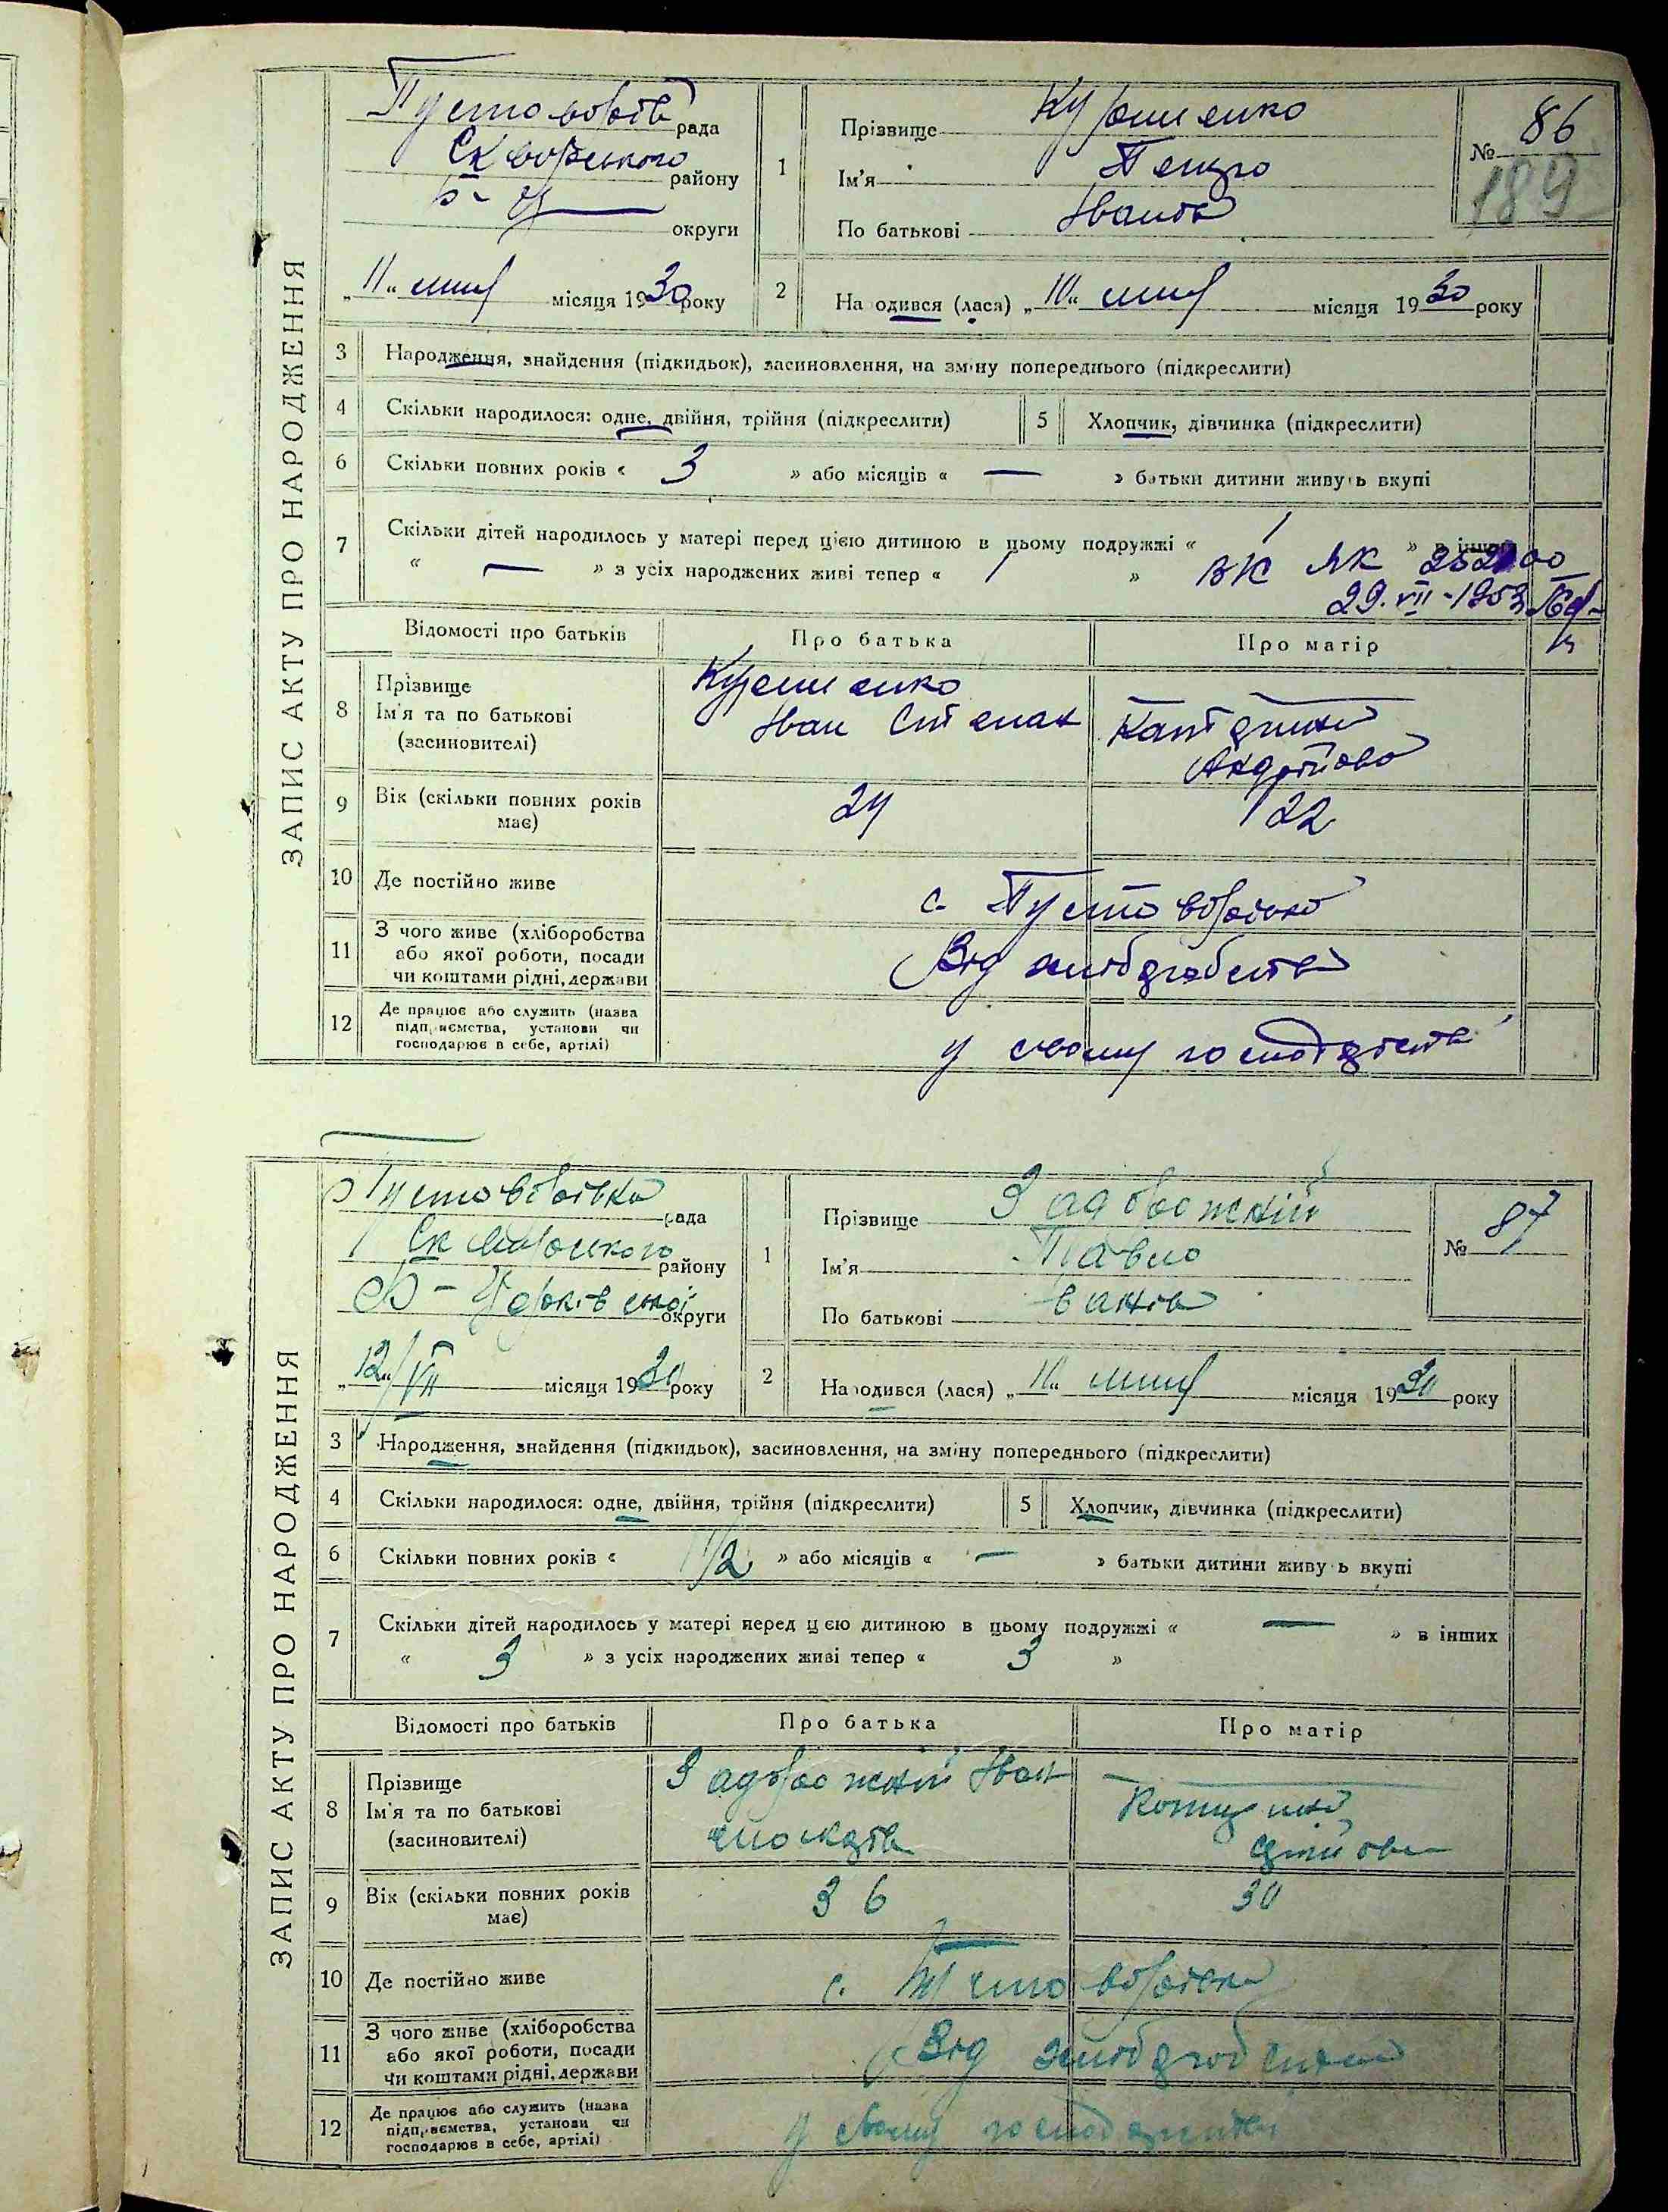 ЗАПИС АКТУ ПРО НАРОДЖЕННЯ
рада
району
округи
„11“ місяця 1930 року
1
Прізвище
Ім'я Петро
По батькові Іванов
№ 86
189
2
На одився (лася) „10“ місяця 1930 року
3 Народження, знайдення (підкидьок), засиновлення, на зміну попереднього (підкреслити)
4 Скільки народилося: одне, двійня, трійня (підкреслити)
5 Хлопчик, дівчинка (підкреслити)
6 Скільки повних років « 3 » або місяців « — » батьки дитини живуть вкупі
7 Скільки дітей народилось у матері перед цією дитиною в цьому подружжі « 1 » в інших
« — » з усіх народжених живі тепер « 1 »
29.VII-1953
Відомості про батьків
Про батька
Про матір
8 Прізвище
Ім'я та по батькові
(засиновителі)
Іван Степан
9 Вік (скільки повних років
має)
24
22
10 Де постійно живе
с. Пустоварівка
11 З чого живе (хліборобства
або якої роботи, посади
чи коштами рідні, держави
Від хліборобства
12 Де працює або служить (назва
підприємства, установи чи
господарює в себе, артілі)
у своєму господарстві
ЗАПИС АКТУ ПРО НАРОДЖЕННЯ
Пустоварівка рада
району
округи
„12“/VII місяця 1930 року
1
Прізвище Задорожний
Ім'я Павло
По батькові
№ 87
2
Народився (лася) „10“ місяця 1930 року
3 Народження, знайдення (підкидьок), засиновлення, на зміну попереднього (підкреслити)
4 Скільки народилося: одне, двійня, трійня (підкреслити)
5 Хлопчик, дівчинка (підкреслити)
6 Скільки повних років « 1 1/2 » або місяців « — » батьки дитини живу ь вкупі
7 Скільки дітей народилось у матері перед цією дитиною в цьому подружжі « — » в інших
« 3 » з усіх народжених живі тепер « 3 »
Відомості про батьків
Про батька
Про матір
8 Прізвище
Ім'я та по батькові
(засиновителі)
Задорожний Іван
9 Вік (скільки повних років
має)
36
30
10 Де постійно живе
с. Пустоварівка
11 З чого живе (хліборобства
або якої роботи, посади
чи коштами рідні, держави
Від хліборобства
12 Де працює або служить (назва
підприємства, установи чи
господарює в себе, артілі)
у своєму господарстві